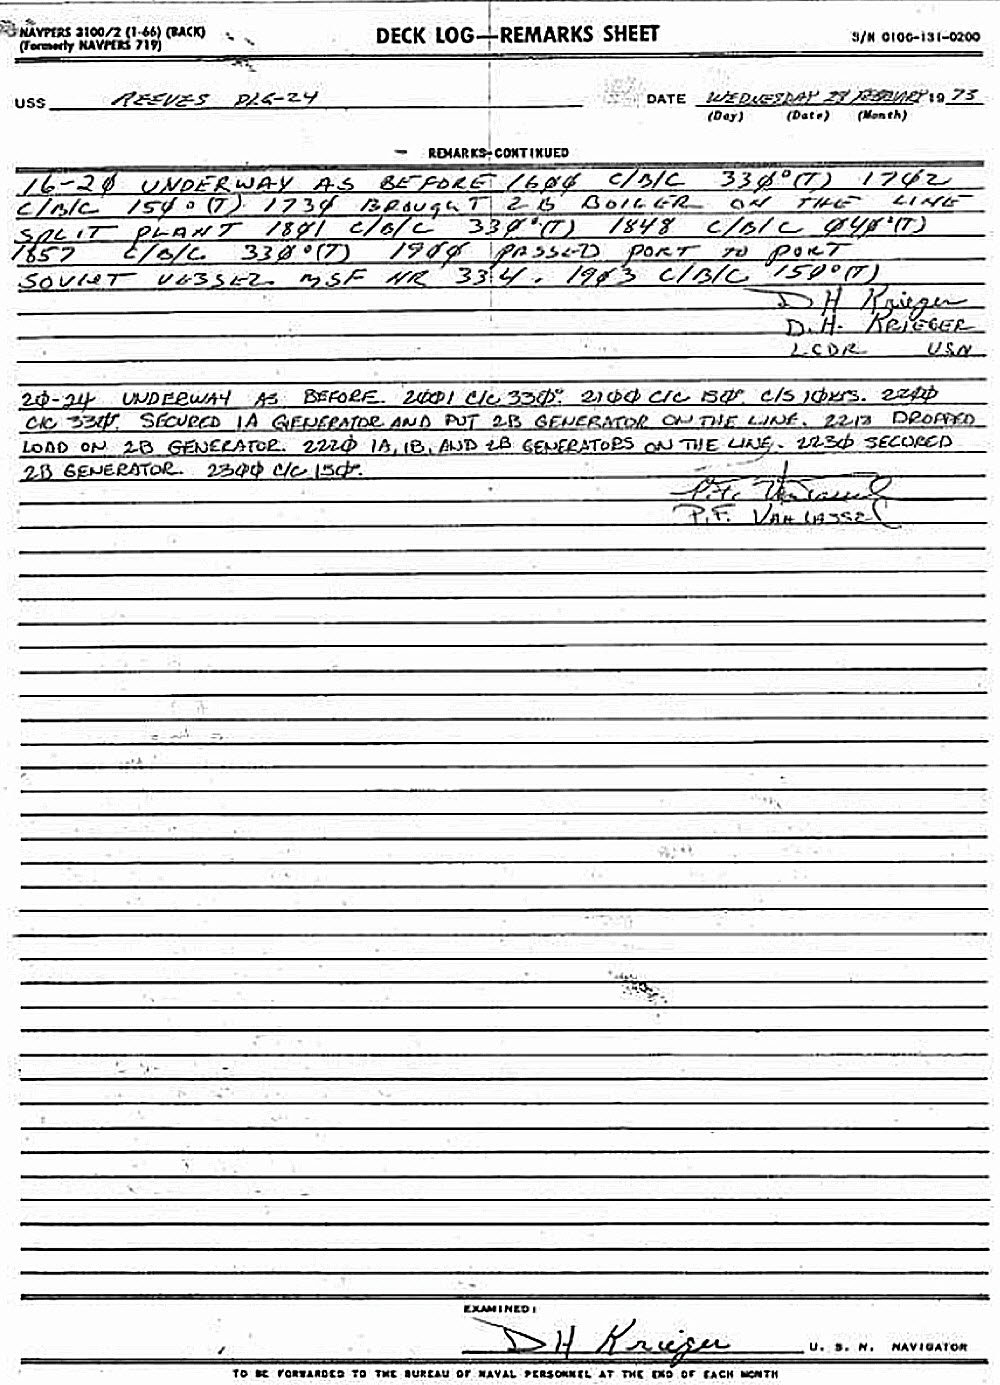 NAVPERS 3100/2 (1-66) (BACK)
(Formerly NAVPERS 719)
DECK LOG—REMARKS SHEET
S/N 0106-131-0200
USS REEVES DLG-24
DATE WEDNESDAY 28 FEBRUARY 1973
(Day) (Date) (Month)
REMARKS-CONTINUED
16-2Ø UNDERWAY AS BEFORE 16ØØ C/B/C 33Ø°(T) 17Ø2
C/B/C 15Ø°(T) 173Ø BROUGHT 2B BOILER ON THE LINE
SPLIT PLANT 18Ø1 C/B/C 33Ø°(T) 1848 C/B/C Ø4Ø°(T)
1857 C/B/C 33Ø°(T) 19ØØ PASSED PORT TO PORT
SOVIET VESSEL MSF NR 334. 19Ø3 C/B/C 15Ø°(T)
D H Krieger
D.H. KRIEGER
LCDR USN
2Ø-24 UNDERWAY AS BEFORE. 2ØØ1 C/C 33Ø°. 21ØØ C/C 15Ø°. C/S 1ØKTS. 22ØØ
C/C 33Ø°. SECURED 1A GENERATOR AND PUT 2B GENERATOR ON THE LINE. 2213 DROPPED
LOAD ON 2B GENERATOR. 222Ø 1A, 1B, AND 2B GENERATORS ON THE LINE. 223Ø SECURED
2B GENERATOR. 23ØØ C/C 15Ø°.
P.F.
EXAMINED:
D H Krieger U. S. N. NAVIGATOR
TO BE FORWARDED TO THE BUREAU OF NAVAL PERSONNEL AT THE END OF EACH MONTH